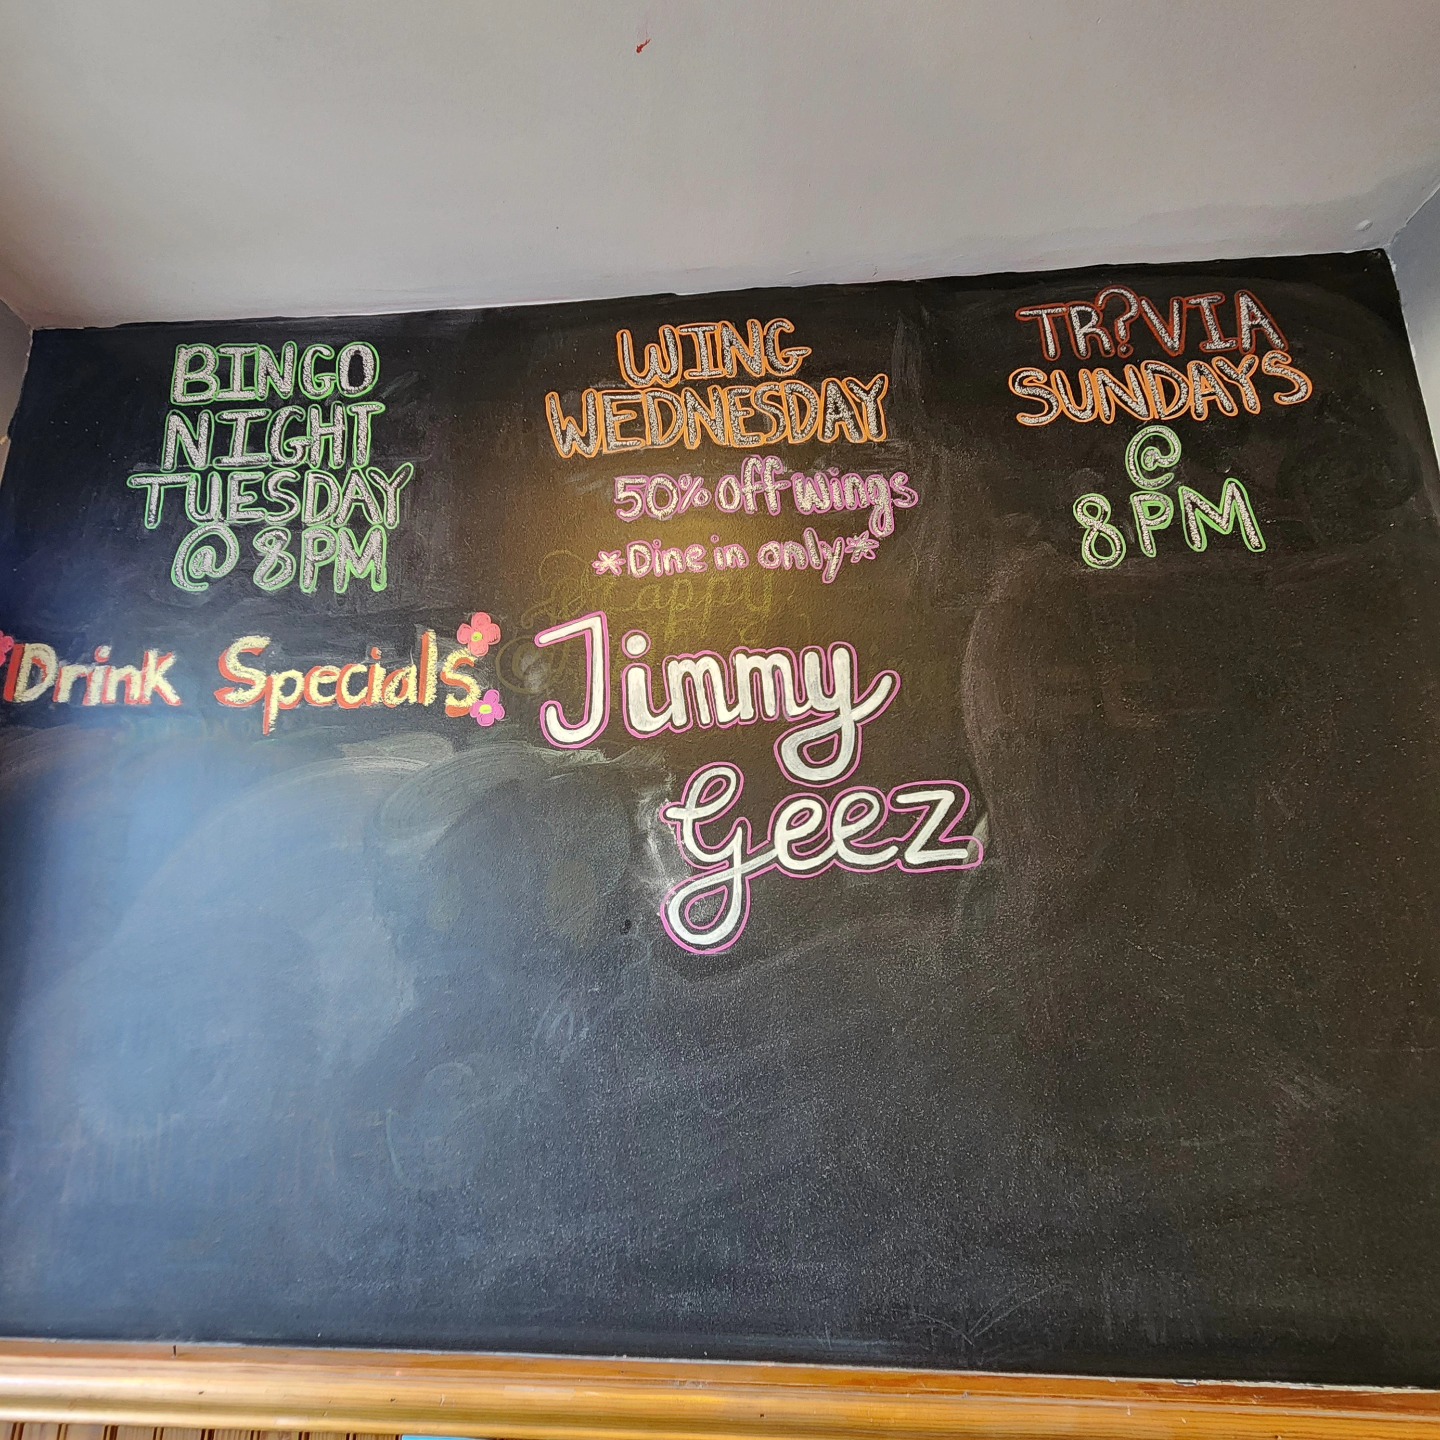 BINGO
NIGHT
TUESDAY
@ 8PM
WING
WEDNESDAY
50% off wings
*Dine in only*
TR?VIA
SUNDAYS
@
8PM
Drink Specials
Happy
Jimmy
Geez